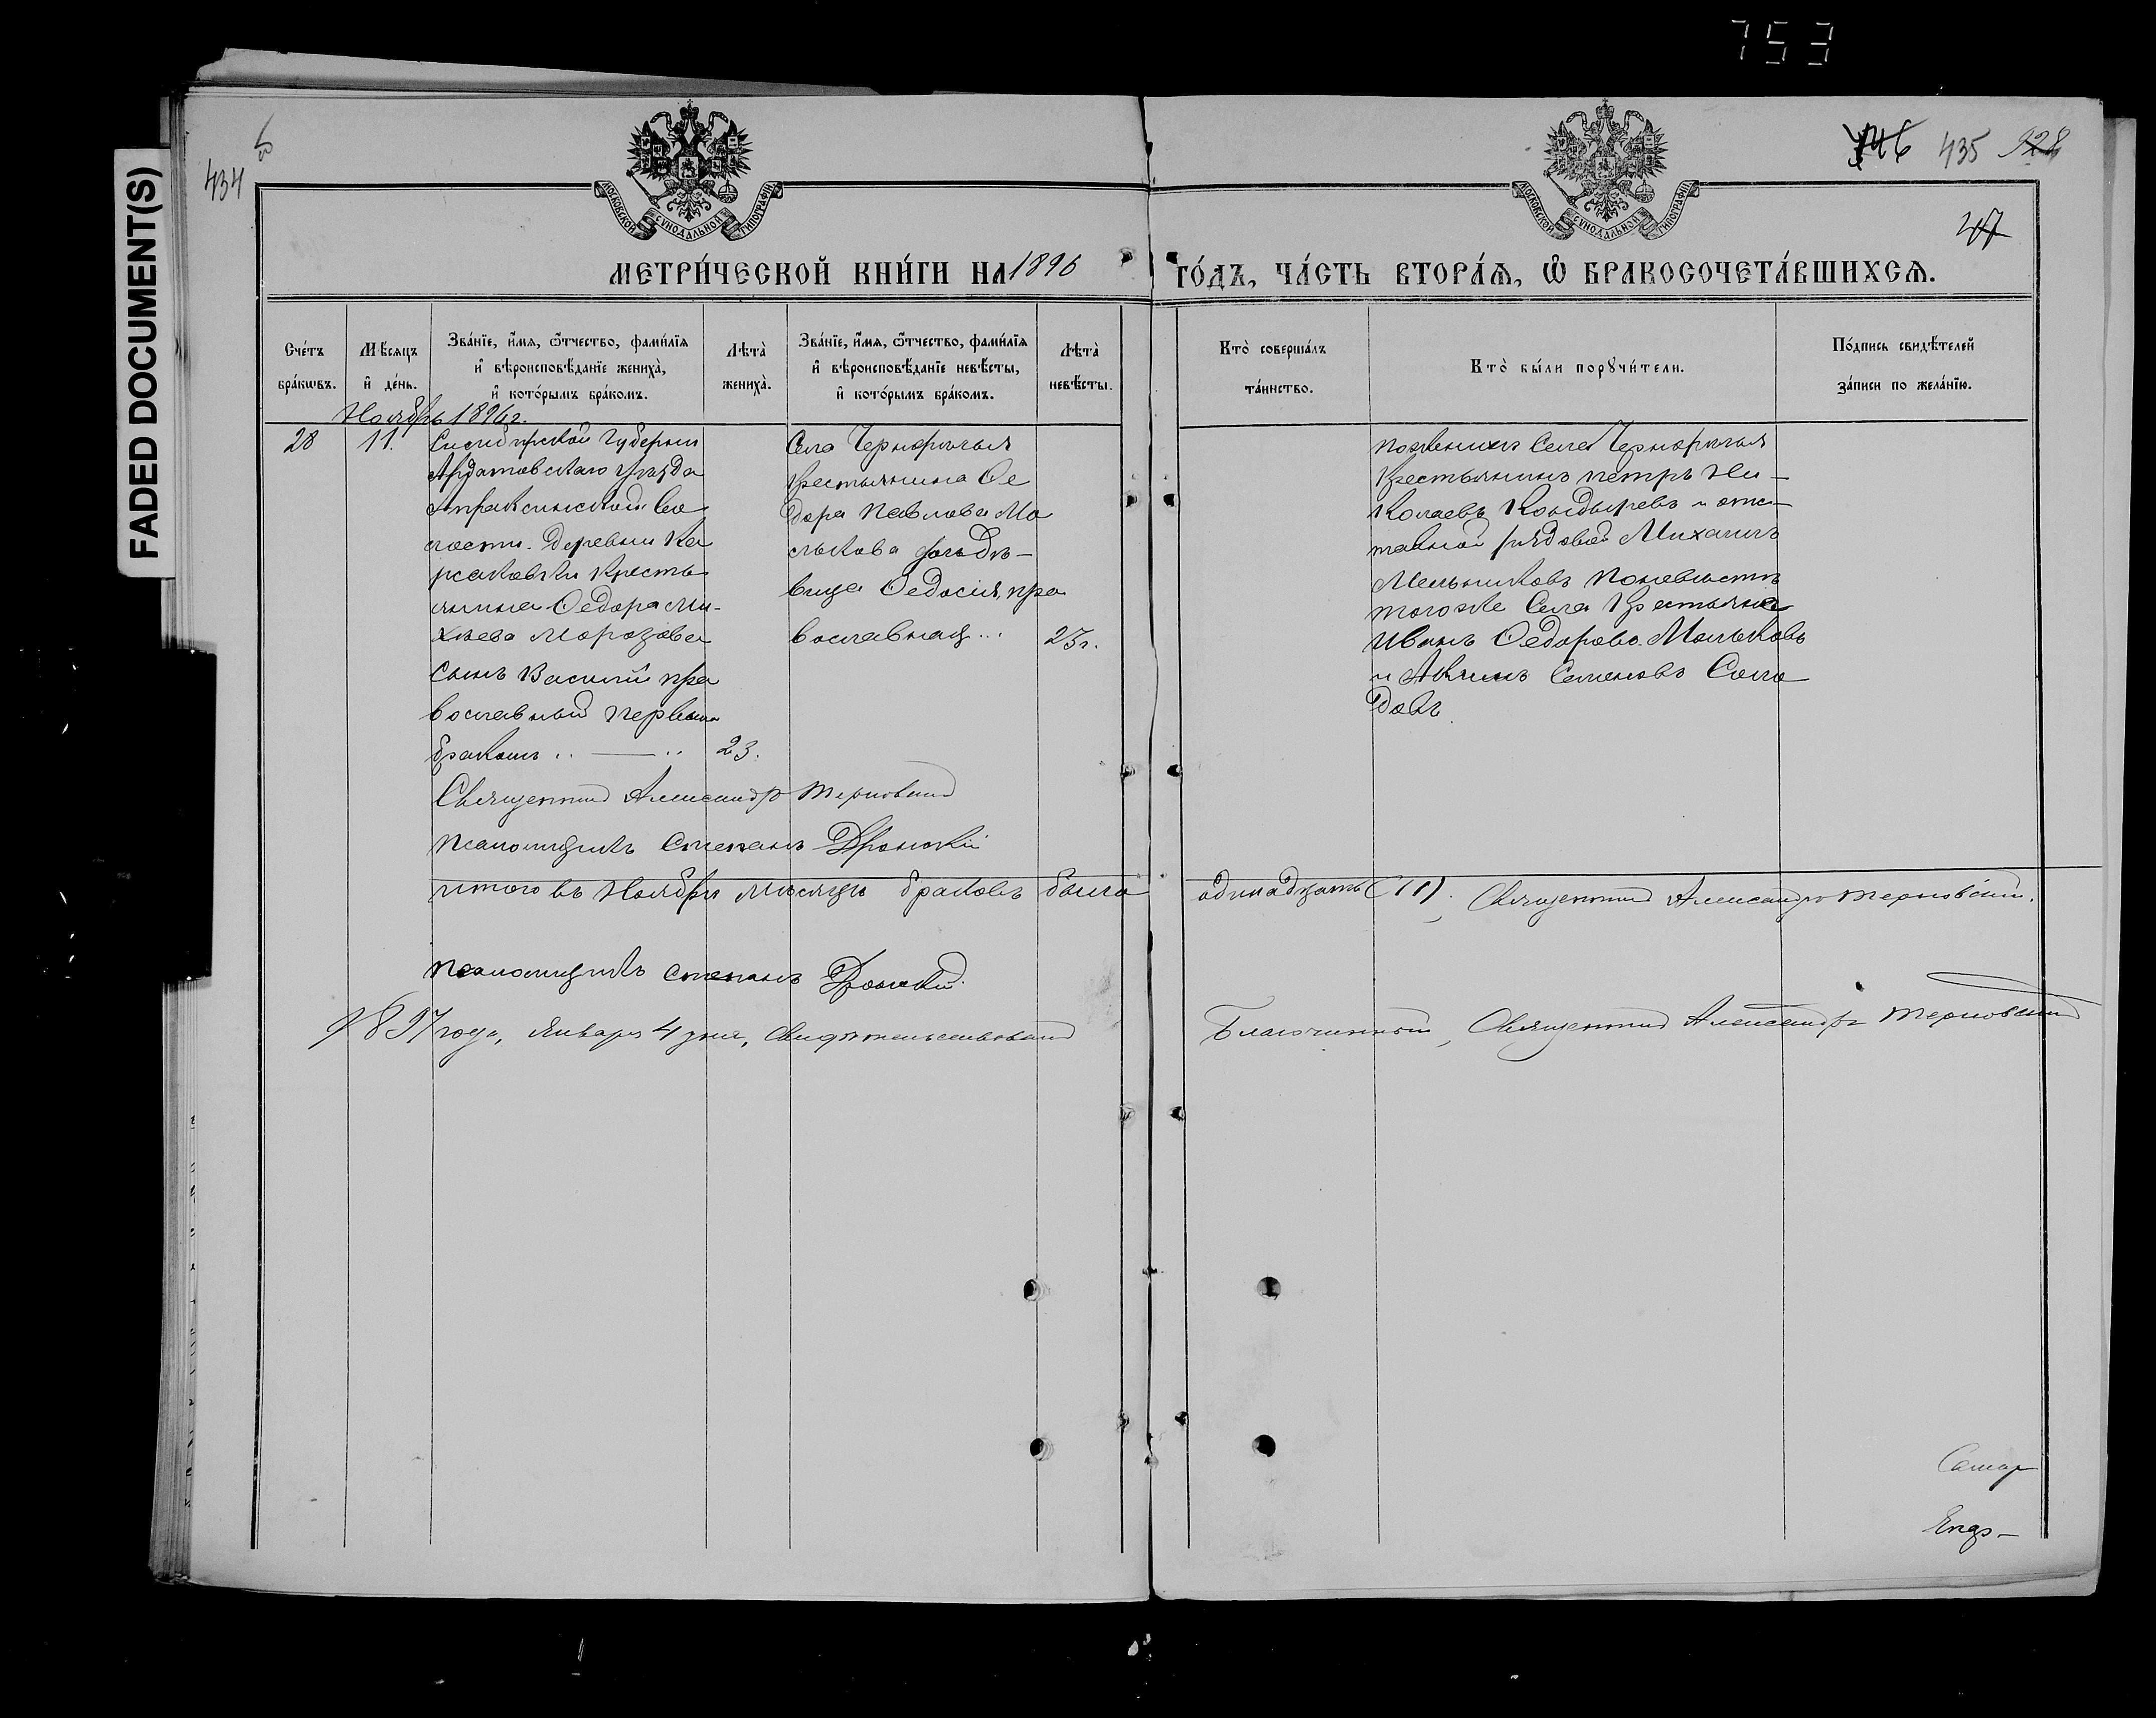 753
FADED DOCUMENT(S)
434
435 928
МОСКОВСКОЙ СѴНОДАЛЬНОЙ ТИПОГРАФІИ
МОСКОВСКОЙ СѴНОДАЛЬНОЙ ТИПОГРАФІИ
МЕТРИ́ЧЕСКОЙ КНИ́ГИ НА 1896 ГО́ДЪ, ЧА́СТЬ ВТОРА́Я, Ѽ БРАКОСОЧЕТА́ВШИХСЯ.
Сче́тъ бра́кѡвъ.
Мѣ́сяцъ и҆ де́нь.
Зва́нїе, и҆́мя, ѻ҆́тчество, фами́лїя и҆ вѣроисповѣ́данїе жениха̀, и҆ кото́рымъ бра́комъ.
Лѣта̀ жениха̀.
Зва́нїе, и҆́мя, ѻ҆́тчество, фами́лїя и҆ вѣроисповѣ́данїе невѣ́сты, и҆ кото́рымъ бра́комъ.
Лѣта̀ невѣ́сты.
Кто̀ соверша́лъ та́инство.
Кто̀ бы́ли порꙋчи́тели.
По́дпись свидѣ́телей за́писи по жела́нїю.
Ноябрь 1896 г.
28
11.
Симбирской Губерніи
Ардатовскаго уѣзда
Апраксинской во
лости. Деревни Ка
рсаковки кресть
янина Ѳедора Ми-
хѣева Морозова
сынъ Василій пра
вославный первымъ
бракомъ
23.
Села Черноречья
крестьянина Ѳе
дора Павлова Мо
слькова дочь дѣ-
вица Ѳедосія, пра
вославная
23 г.
По женихѣ Села Черноречья
Крестьянинъ Петръ Ни-
колаевъ Кондыревъ и отс-
тавной рядовой Михаилъ
Мельниковъ по невѣстѣ
того же Села Крестьяне
Иванъ Ѳедоровъ Мальковъ
и Семеновъ Соло
довъ
Священникъ Александръ Терновскій
Псаломщикъ Степанъ Донской
Итого въ Ноябрѣ мѣсяцѣ браковъ было одинадцать (11). Священникъ Александръ Терновскій.
Псаломщикъ Степанъ Донской
1897 года, Января 4 дня, свидѣтельствовалъ Благочинный, Священникъ Александръ Терновскій